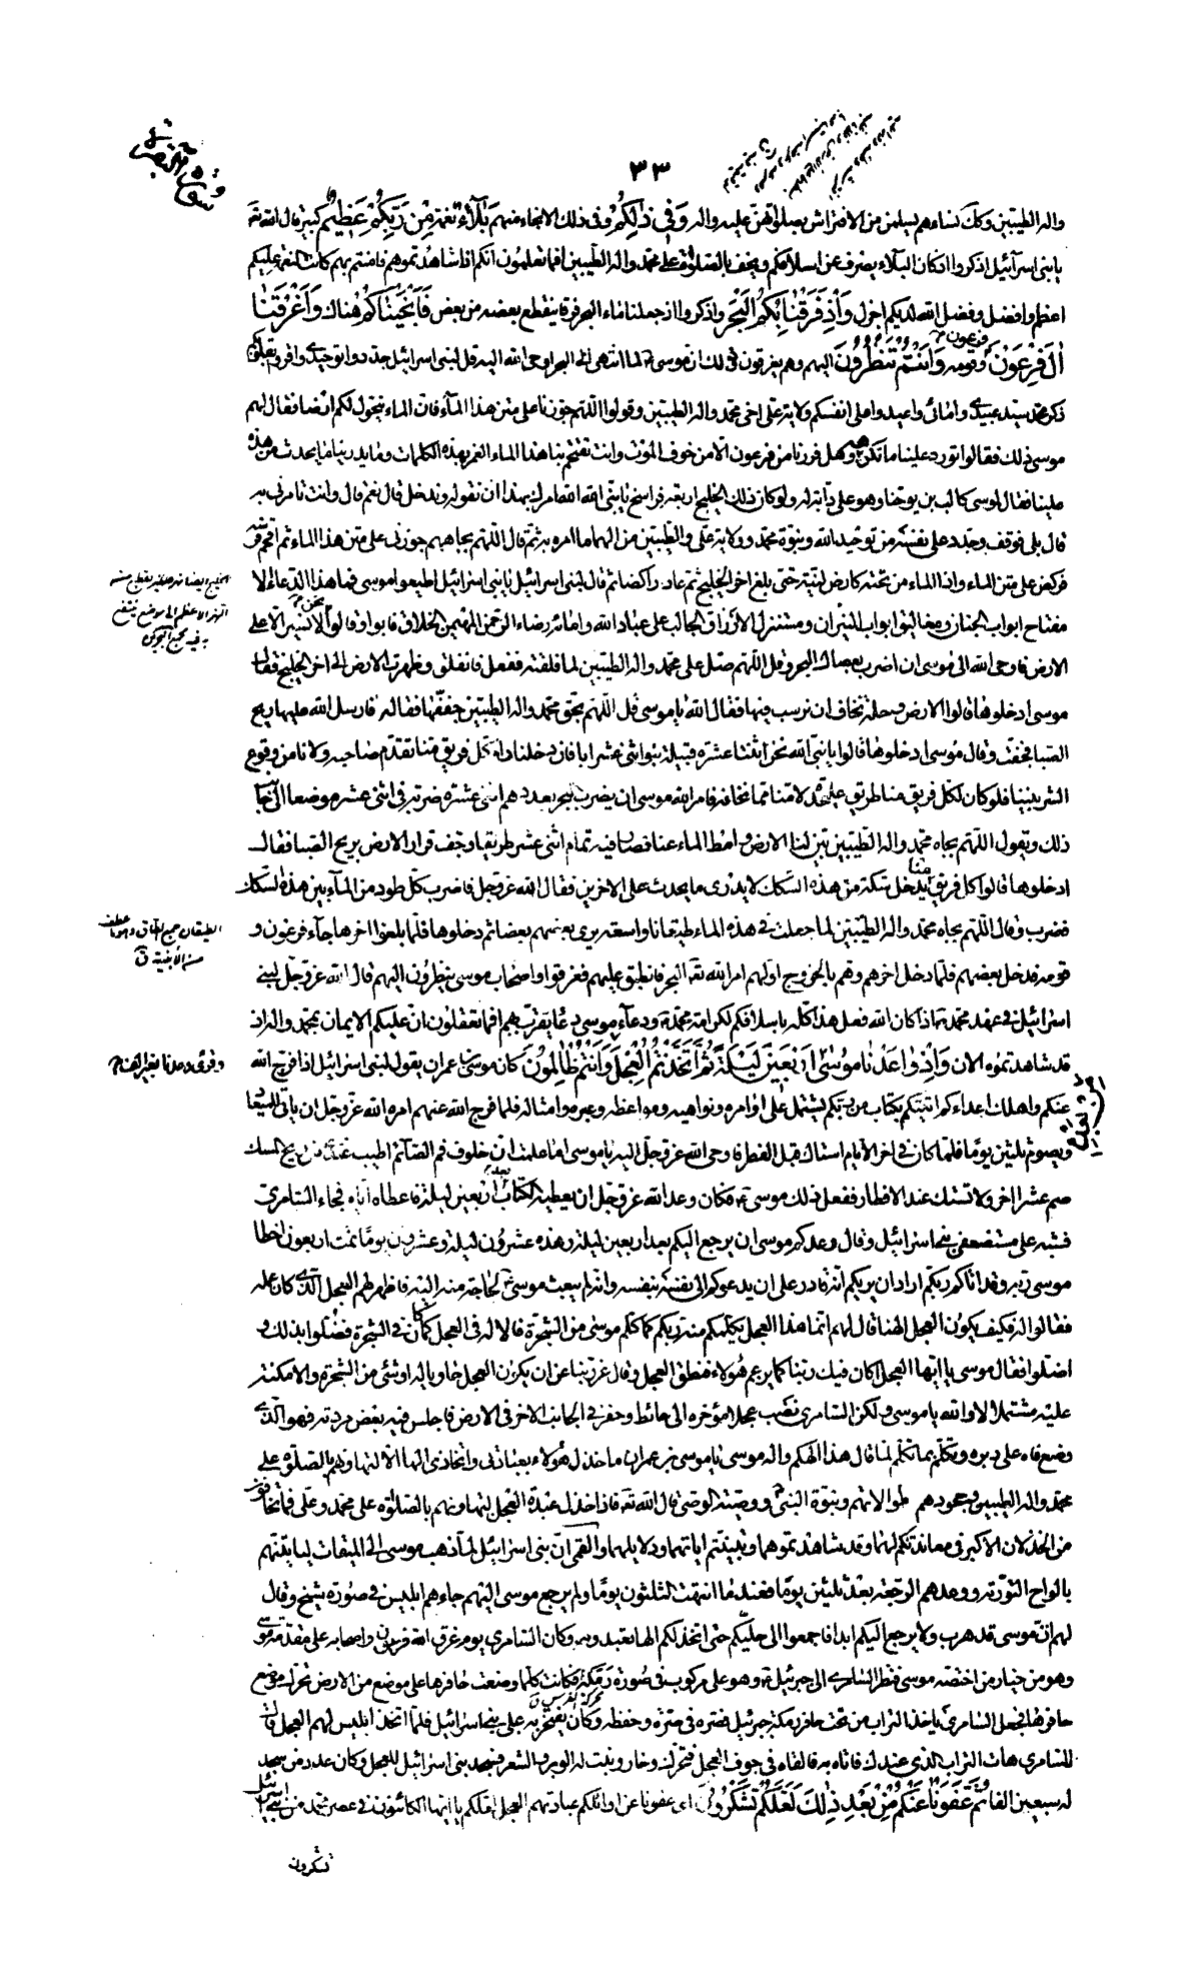 سورة البقرة
٣٣
واله الطيبين وكك نساءهم يسلمن من الافتراش بصلوتهن عليه واله وَفي ذلِكُمْ وفي ذلك الانجاء منهم بَلاۤءٌ نعمة مِنْ رَبِّكُمْ عَظيمٌ كبير قال الله تع
يا بنى اسرآئيل اذكروا اذ كان البلاء يصرف عن اسلافكم ويخف بالصلوة على محمد واله الطيبين افما تعلمون انكم اذا شاهدتموهم فامنتم بهم كانت النعمة عليكم
اعظم وافضل وفضل الله لديكم اجزل وَاِذْ فَرَقْنا بِكُمُ الْبَحْرَ واذكروا اذ جعلنا ماء البحر فرقا ينقطع بعضه من بعض فَاَنْجَيْناكُمْ هناك وَاَغْرَقْنا
الَ فِرْعَوْنَ فرعون وقومه وَاَنْتُمْ تَنْظُرُونَ اليهم وهم يغرقون ذلك ان موسى لما انتهى الى البحر اوحى الله اليه قل لبنى اسرائيل جددوا توحيدى واقروا بقلوبكم
ذكر محمد سيد عبيدى وامائى واعيدوا على انفسكم ولاية على اخى محمد واله الطيبين وقولوا اللهم جوزنا على متن هذا المآء فان الماء يتحول لكم ارضا فقال لهم
موسى ذلك فقالوا تورد علينا ما نكره وهل فررنا من فرعون الا من خوف الموت وانت تقتحم بنا هذا الماء الغمر بهذه الكلمات وما يدرينا ما يحدث من هذه
علينا فقال لموسى كالب بن يوحنا وهو على دابة له ولو كان ذلك الخليج اربعة فراسخ يا نبى الله الله امرك بهذا ان نقوله وندخل قال نعم قال وانت تامرنى به
قال بلى فوقف وجدد على نفسه من توحيد الله ونبوة محمد وولاية على والطيبين من الهما ما امره به ثم قال اللهم بجاههم جوزنى على متن هذا الماء ثم اقحم فرسه
فركض على متن الماء واذا الماء من تحته كارض لينة حتى بلغ اخر الخليج ثم عاد راكضا ثم قال لبنى اسرائيل يا بنى اسرائيل اطيعوا موسى فما هذا الدعاء الا
مفتاح ابواب الجنان ومغاليق ابواب النيران ومستنزل الارزاق والجالب على عباد الله وامائه رضاء الرحمن المهيمن الخلاق فابوا وقالوا نحن لا نسير الا على
الارض فاوحى الله الى موسى ان اضرب بعصاك البحر وقل اللهم صل على محمد واله الطيبين لما فلقته ففعل فانفلق وظهرت الارض الى اخر الخليج فقال
موسى ادخلوها قالوا الارض وحلة نخاف ان نرسب فيها فقال الله يا موسى قل اللهم بحق محمد واله الطيبين جففها فقالها فارسل الله عليها ريح
الصبا فجفت وقال موسى ادخلوها قالوا يا نبى الله نحن اثنتا عشرة قبيلة بنو اثنى عشر ابا فان دخلنا رام كل فريق منا تقدم صاحبه ولا نامن وقوع
الشر بيننا فلو كان لكل فريق منا طريق على حدة لامنا مما نخافه فامر الله موسى ان يضرب البحر بعددهم اثنتى عشرة ضربة فى اثنى عشر موضعا الى جانب
ذلك ويقول اللهم بجاه محمد واله الطيبين بين لنا الارض وامط الماء عنا فصار فيه تمام اثنى عشر طريقا وجف قرار الارض بريح الصبا فقال
ادخلوها قالوا كل فريق منا يدخل سكة من هذه السكك لا يدرى ما يحدث على الاخرين فقال الله عز وجل فاضرب كل طود من المآء بين هذه السكك
فضرب وقال اللهم بجاه محمد واله الطيبين لما جعلت فى هذه الماء طيقانا واسعة يرى بعضهم بعضا ثم دخلوها فلما بلغوا اخرها جآء فرعون و
قومه فدخل بعضهم فلما دخل اخرهم وهم بالخروج اولهم امر الله تع البحر فانطبق عليهم فغرقوا واصحاب موسى ينظرون اليهم قال الله عز وجل لبنى
اسرائيل فى عهد محمد فاذا كان الله فعل هذا كله باسلافكم لكرامة محمد ودعآء موسى دعاء يقرب بهم افما تعقلون ان عليكم الايمان بمحمد واله اذ
قد شاهدتموه الان وَاِذْ واعَدْنا مُوسى اَرْبَعينَ لَيْلَةً ثُمَّ اتَّخَذْتُمُ الْعِجْلَ وَاَنْتُمْ ظالِمُونَ كان موسى بن عمران يقول لبنى اسرائيل اذا فرج الله
عنكم واهلك اعداءكم اتيتكم بكتاب من ربكم يشتمل على اوامره ونواهيه ومواعظه وعبره وامثاله فلما فرج الله عنهم امره الله عز وجل ان ياتى للميعاد
ويصوم ثلثين يوما فلما كان فى اخر الايام استاك قبل الفطر فاوحى الله عز وجل اليه يا موسى اما علمت ان خلوف فم الصآئم اطيب عندى من ريح المسك
صم عشرا اخر ولا تستك عند الافطار ففعل ذلك موسى فكان وعد الله عز وجل ان يعطيه الكتاب بعد اربعين ليلة فاعطاه اياه فجاء السامرى
فشبه على مستضعفى بنى اسرائيل وقال وعدكم موسى ان يرجع اليكم بعد اربعين ليلة وهذه عشرون ليلة وعشرون يوما تمت اربعون اخطا
موسى ربه وقد اتاكم ربكم اراد ان يريكم انه قادر على ان يدعوكم الى نفسه بنفسه وانه لم يبعث موسى لحاجة منه اليه فاظهر لهم العجل الذى كان عمله
فقالوا له فكيف يكون العجل الهنا قال لهم انما هذا العجل يكلمكم منه ربكم كما كلم موسى من الشجرة فالاله فى العجل كما كان فى الشجرة فضلوا بذلك و
اضلوا فقال موسى يا ايها العجل اكان فيك ربنا كما يزعم هؤلاء فنطق العجل وقال عز ربنا عن ان يكون العجل حاويا له او شئ من الشجرة والامكنة
عليه مشتملا لا والله يا موسى ولكن السامرى نصب عجلا مؤخره الى حائط وحفر فى الجانب الاخر فى الارض فاجلس فيه بعض مردته فهو الذى
وضع فاه على دبره وتكلم بما تكلم لما قال هذا الهكم واله موسى يا موسى بن عمران ما خذل هؤلاء بعبادتى واتخاذى الها الا لتهاونهم بالصلوة على
محمد واله الطيبين وجحودهم بموالاتهم ونبوة النبى ووصية الوصى قال الله تع فاذا خذل عبدة العجل لتهاونهم بالصلوة على محمد وعلى فما تخافون
من الخذلان الاكبر فى معاندتكم لهما وقد شاهدتموهما وتبينتم اياتهما ودلايلهما والقمى ان بنى اسرائيل لما ذهب موسى الى الميقات لياتيهم
بالواح التورية ووعدهم الرجعة بعد ثلثين يوما فعند ما انتهت الثلثون يوما ولم يرجع موسى اليهم جاءهم ابليس فى صورة شيخ وقال
لهم ان موسى قد هرب ولا يرجع اليكم ابدا فاجمعوا الى حليكم حتى اتخذ لكم الها تعبدونه وكان السامرى يوم غرق الله فرعون واصحابه على مقدمة موسى
وهو من خيار من اختصه موسى فنظر السامرى الى جبرئيل وهو على مركوب فى صورة رمكة فكانت كلما وضعت حافرها على موضع من الارض تحرك موضع
حافرها فجعل السامرى ياخذ التراب من تحت حافر رمكة جبرئيل فصره فى صرة وحفظه وكان يفتخر به على بنى اسرائيل فلما اتخذ ابليس لهم العجل قال
للسامرى هات التراب الذى عندك فاتاه به فالقاه فى جوف العجل فتحرك وخار ونبت له الوبر والشعر فسجد بنى اسرائيل للعجل وكان عدد من سجد
له سبعين الفا ثُمَّ عَفَوْنا عَنْكُمْ مِنْ بَعْدِ ذلِكَ لَعَلَّكُمْ تَشْكُرُونَ اى عفونا عن اوائلكم عبادتهم العجل لعلكم يا ايها الكائنون فى عصر محمد من بنى اسرائيل
تشكرون
النهر الاعظم الى موضع ينتفع
به فيه مجمع البحرين
الطيقان جمع الطاق وهو ما عطف
من الأبنية ق
وقرئ وعدنا بغير الف